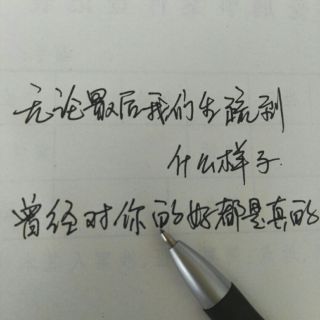 无论最后我们生疏到
什么样子.
曾经对你的好都是真的